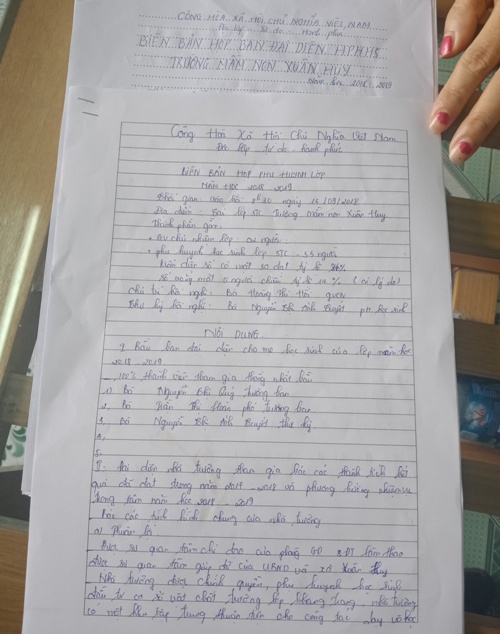 CỘNG HÒA XÃ HỘI CHỦ NGHĨA VIỆT NAM
Độc lập Tự do Hạnh phúc
BIÊN BẢN HỌP BAN ĐẠI DIỆN HPHHS
TRƯỜNG MẦM NON XUÂN HUY
Năm học 2018 - 2019
Cộng Hoà Xã Hội Chủ Nghĩa Việt Nam
Độc lập tự do hạnh phúc
BIÊN BẢN HỌP PHỤ HUYNH LỚP
NĂM HỌC 2018 2019
Thời gian vào hồi ngày 15/09/2018
Địa điểm: Tại lớp 5TC Trường mầm non Xuân Huy
Thành phần gồm:
+ GV chủ nhiệm lớp: 02 người
+ phụ huynh học sinh lớp 5TC - 33 người
số có mặt đạt tỷ lệ
số vắng mặt người chiếm tỷ lệ % (có lý do)
chủ trì hội nghị: Bà Hoàng Thị
Thư ký hội nghị: Bà Nguyễn Thị Ánh Tuyết pH học sinh
NỘI DUNG
I Bầu ban đại diện cha mẹ học sinh của lớp năm học
2018 - 2019
100% thành viên tham gia thống nhất bầu
1, Bà Nguyễn Thị Quý trưởng ban
2, Bà Trần Thị phó trưởng ban
3, Bà Nguyễn Thị Ánh Tuyết thư ký
4,
5.
II: đại diện nhà trường tham gia báo cáo thành tích kết
quả đã đạt được năm 2017 - 2018 và phương hướng nhiệm vụ
trọng tâm năm học 2018 - 2019
Báo cáo tình hình chung của nhà trường
a) Thuận lợi
Được sự quan tâm chỉ đạo của phòng GD &ĐT Lâm Thao
được sự quan tâm giúp đỡ của UBND xã Xuân Huy
Nhà trường được chính quyền, phụ huynh học sinh
đầu tư cơ sở vật chất trường lớp khang trang, nhà trường
có một khu tập trung thuận tiện cho công tác dạy và học